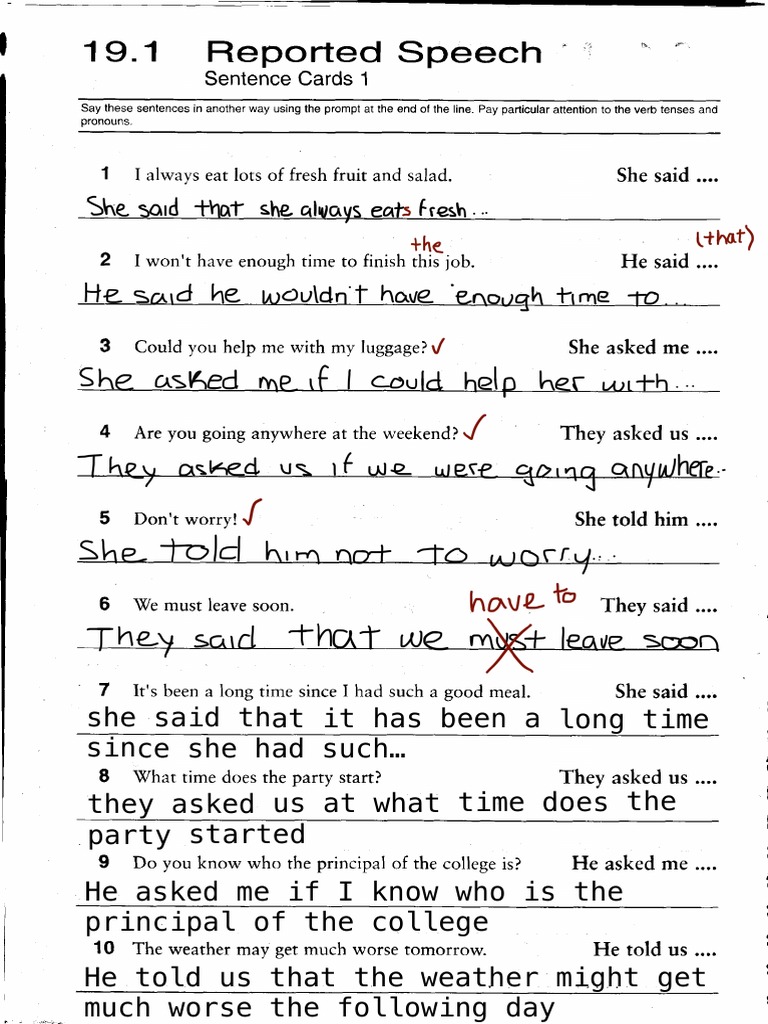 19.1 Reported Speech
Sentence Cards 1
Say these sentences in another way using the prompt at the end of the line. Pay particular attention to the verb tenses and
pronouns.
1 I always eat lots of fresh fruit and salad. She said ....
She said that she always eats fresh...
the (that)
2 I won't have enough time to finish this job. He said ....
He said he wouldn't have enough time to...
3 Could you help me with my luggage? ✓ She asked me ....
She asked me if I could help her with...
4 Are you going anywhere at the weekend? ✓ They asked us ....
They asked us if we were going anywhere...
5 Don't worry! ✓ She told him ....
She told him not to worry...
have to
6 We must leave soon. They said ....
They said that we must leave soon
7 It's been a long time since I had such a good meal. She said ....
she said that it has been a long time
since she had such…
8 What time does the party start? They asked us ....
they asked us at what time does the
party started
9 Do you know who the principal of the college is? He asked me ....
He asked me if I know who is the
principal of the college
10 The weather may get much worse tomorrow. He told us ....
He told us that the weather might get
much worse the following day